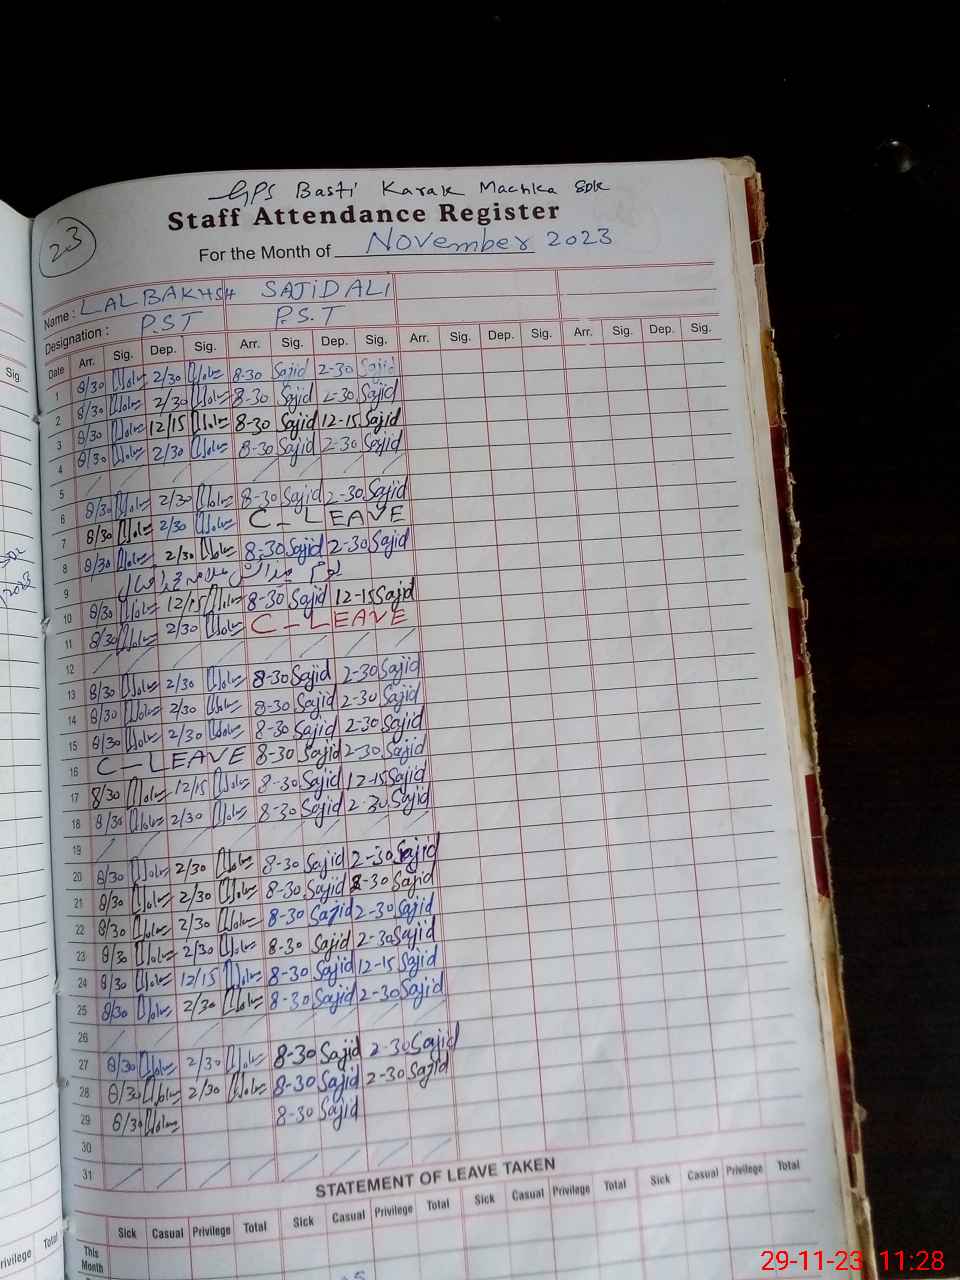 GPS Basti Karak Machka Spk
Staff Attendance Register
23
For the Month of November 2023
Name : LALBAKHSH SAJID ALI
Designation : P.ST P.S.T
Date Arr. Sig. Dep. Sig. Arr. Sig. Dep. Sig. Arr. Sig. Dep. Sig. Arr. Sig. Dep. Sig.
1 8/30 2/30 8-30 Sajid 2-30 Sajid
2 8/30 2/30 8-30 Sajid 2-30 Sajid
3 8/30 12/15 8-30 Sajid 12-15 Sajid
4 8/30 2/30 8-30 Sajid 2-30 Sajid
5
6 8/30 2/30 8-30 Sajid 2-30 Sajid
7 8/30 2/30 C-LEAVE
8 8/30 2/30 8-30 Sajid 2-30 Sajid
9 یوم
10 8/30 12/15 8-30 Sajid 12-15 Sajid
11 8/30 2/30 C-LEAVE
12
13 8/30 2/30 8-30 Sajid 2-30 Sajid
14 8/30 2/30 8-30 Sajid 2-30 Sajid
15 8/30 2/30 8-30 Sajid 2-30 Sajid
16 C-LEAVE 8-30 Sajid 2-30 Sajid
17 8/30 12/15 8-30 Sajid 12-15 Sajid
18 8/30 2/30 8-30 Sajid 2-30 Sajid
19
20 8/30 2/30 8-30 Sajid 2-30 Sajid
21 8/30 2/30 8-30 Sajid 2-30 Sajid
22 8/30 2/30 8-30 Sajid 2-30 Sajid
23 8/30 2/30 8-30 Sajid 2-30 Sajid
24 8/30 12/15 8-30 Sajid 12-15 Sajid
25 8/30 2/30 8-30 Sajid 2-30 Sajid
26
27 8/30 2/30 8-30 Sajid 2-30 Sajid
28 8/30 2/30 8-30 Sajid 2-30 Sajid
29 8/30 8-30 Sajid
30
31
STATEMENT OF LEAVE TAKEN
Sick Casual Privilege Total Sick Casual Privilege Total Sick Casual Privilege Total Sick Casual Privilege Total
This Month
Sig.
2023
rivilege Total
29-11-23 11:28